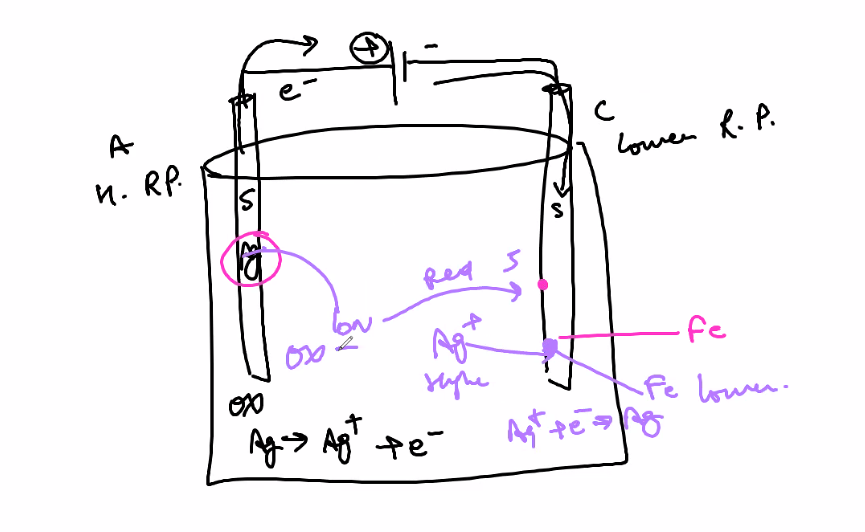 + -
e⁻
A
H. RP.
C
Lower R. P.
S
S
Ag
Red S
Ion
OX
Ag⁺
Fe
Fe lower.
OX
Ag → Ag⁺ + e⁻
Ag⁺ + e⁻ → Ag